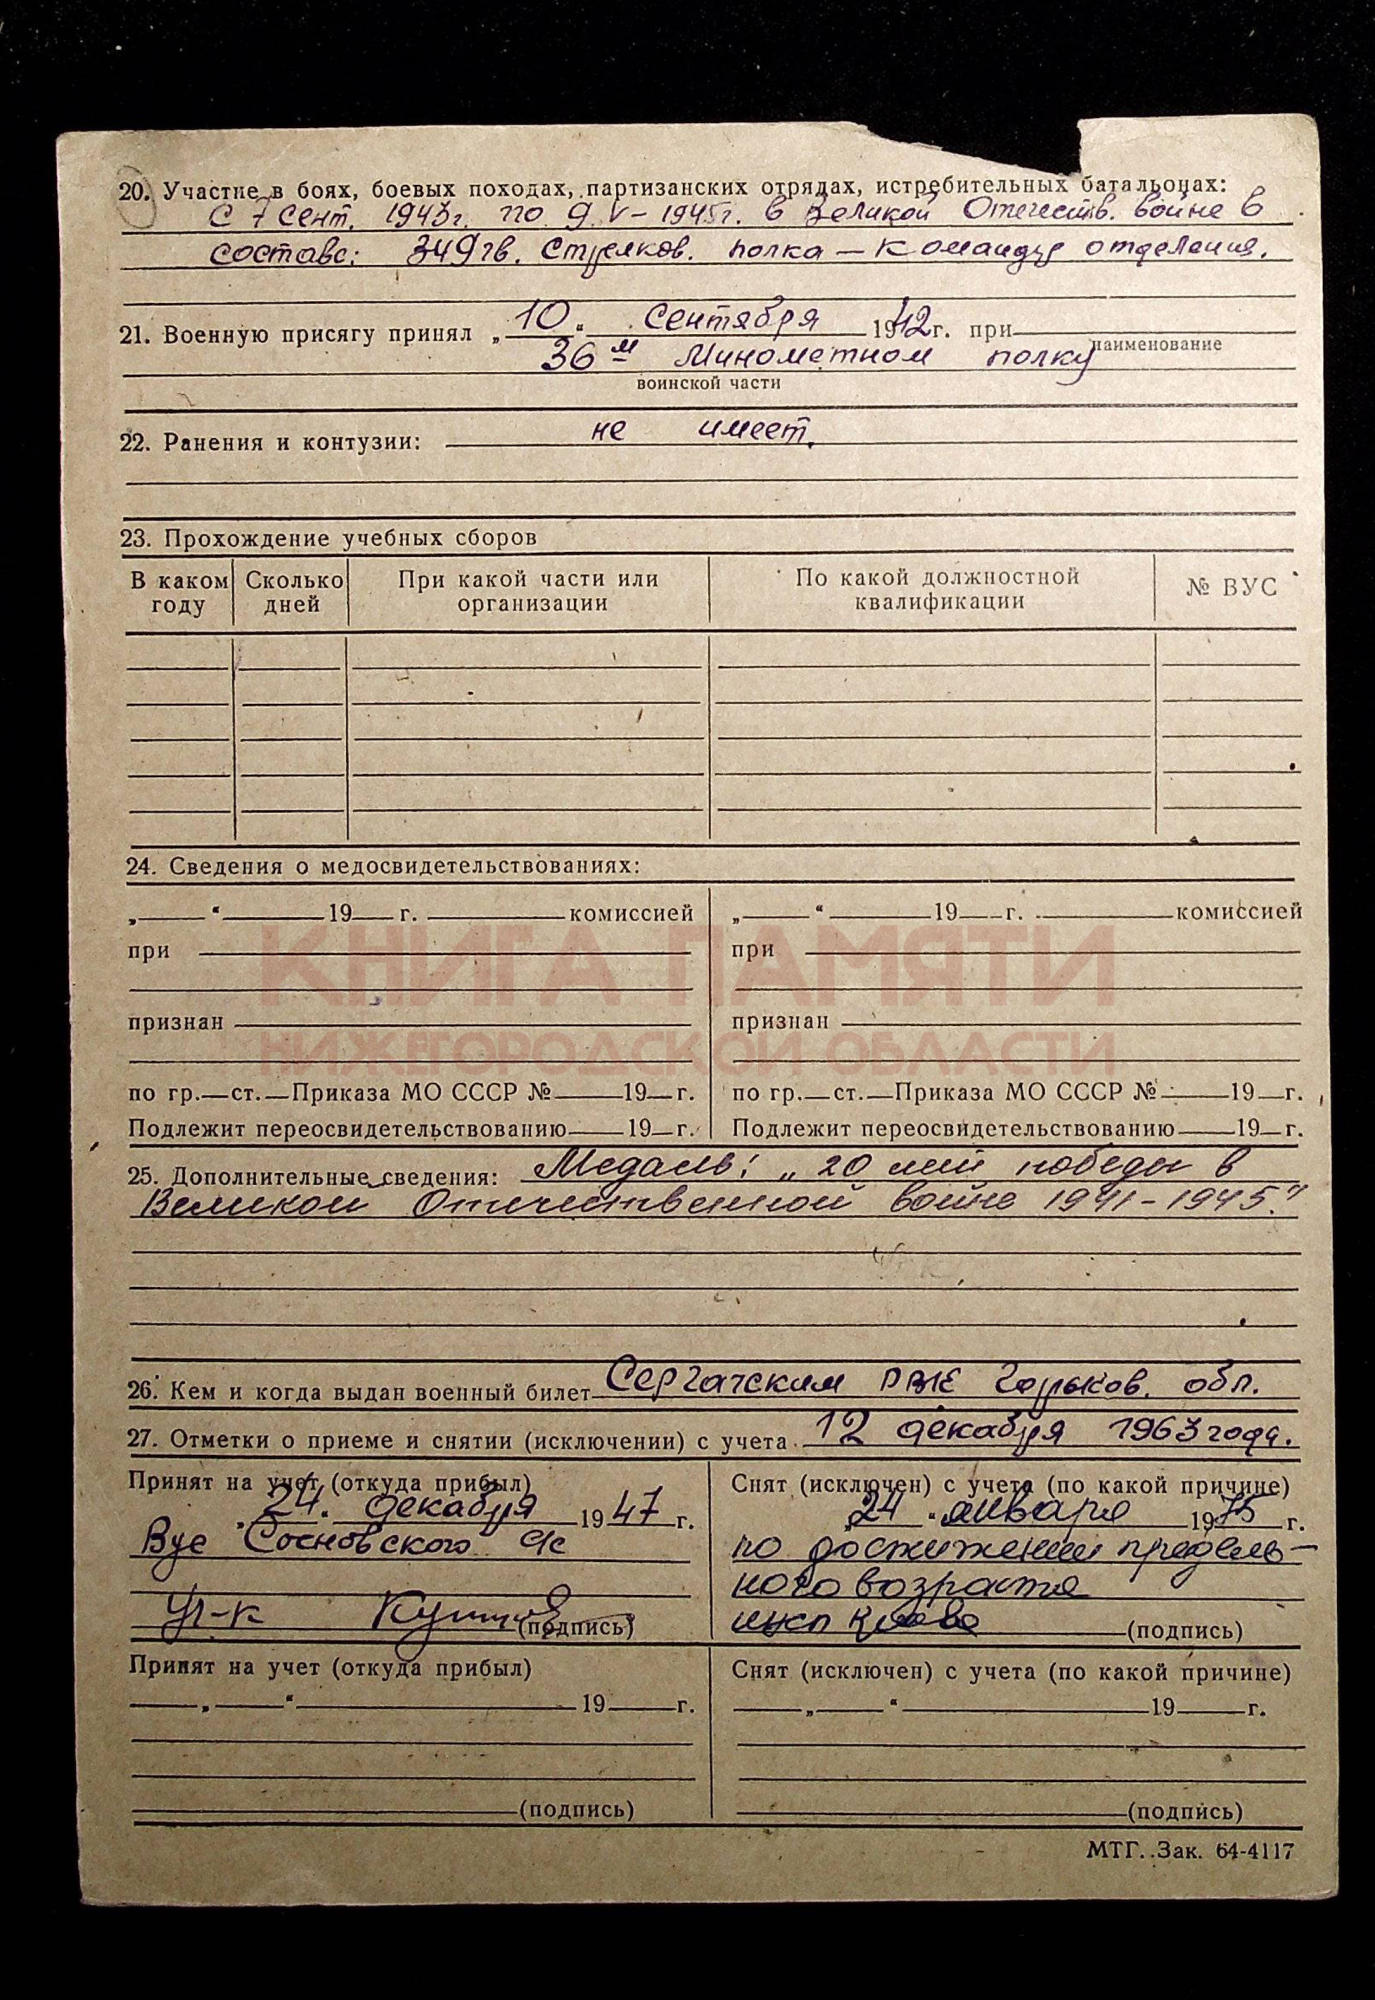 20. Участие в боях, боевых походах, партизанских отрядах, истребительных батальонах:
С 7 Сент. 1943г. по 9.V-1945г. в Великой Отечеств. войне в
составе: 349 гв. Стрелков. полка – Командир отделения.
21. Военную присягу принял „10“ Сентября 1942г. при
наименование
36м Минометном полку
воинской части
22. Ранения и контузии: не имеет.
23. Прохождение учебных сборов
В каком году Сколько дней При какой части или организации По какой должностной квалификации № ВУС
24. Сведения о медосвидетельствованиях:
„ “ 19 г. комиссией „ “ 19 г. комиссией
при при
КНИГА ПАМЯТИ
признан признан
НИЖЕГОРОДСКОЙ ОБЛАСТИ
по гр. ст. Приказа МО СССР № 19 г. по гр. ст. Приказа МО СССР № 19 г.
Подлежит переосвидетельствованию 19 г. Подлежит переосвидетельствованию 19 г.
25. Дополнительные сведения: Медаль: „20 лет победы в
Великой Отечественной войне 1941-1945."
26. Кем и когда выдан военный билет Сергачским РВК Горьков. обл.
27. Отметки о приеме и снятии (исключении) с учета 12 декабря 1963 года.
Принят на учет (откуда прибыл) Снят (исключен) с учета (по какой причине)
„24. декабря 1947 г. „24“ января 1975 г.
Вус Сосновского с/с по достижении предель-
ного возраста
(подпись) инсп (подпись)
Принят на учет (откуда прибыл) Снят (исключен) с учета (по какой причине)
„ “ 19 г. „ “ 19 г.
(подпись) (подпись)
МТГ. Зак. 64-4117